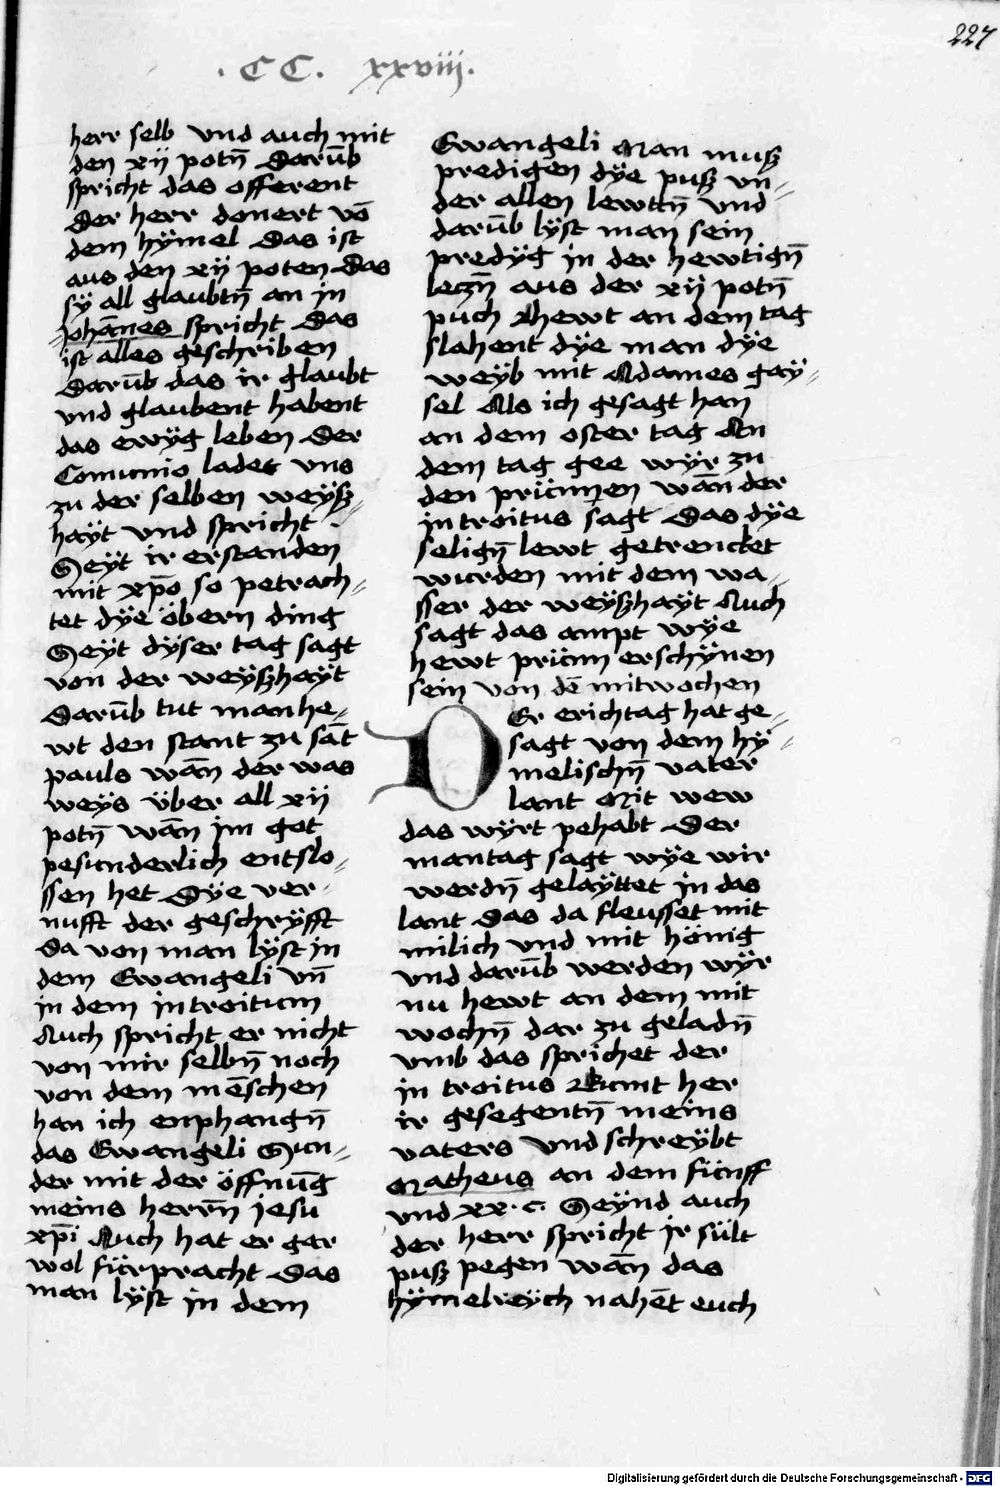 227
. CC . xxviii.
herr selb vnd auch mit
den xij potn̄ Darūb
spricht das offerent
Der herr donert vō
dem hÿmel Das ist
aus den xij poten Das
sÿ all glaubtn̄ an in
Johānes spricht Das
ist alles geschriben
Darūb das ir glaubt
vnd glaubent habent
das ewÿg leben Der
Comunio ladet vns
zu der selben weÿsz=
haÿt vnd spricht
Seÿt ir erstanden
mit xp̄o so petrach=
tet dÿe öbern ding
Seÿt dÿser tag sagt
von der weÿszhaÿt
Darūb tut man he=
wt den stant zu sāt
pauls wān der was
weÿs über all xij
potn̄ wān im got
pesunderlich entslo=
ssen het Dÿe ver=
nufft der geschrÿfft
Da von man lÿst in
dem Ewangeli vn̄
in dem introitum
Auch spricht er nicht
von mir selbn̄ noch
von dem mēschen
han ich enphangn̄
das Ewangeli Sun=
der mit der öffnūg
meins herrn̄ jesu
xp̄i Auch hat er gar
wol fürpracht Das
man lÿst in dem
Ewangeli Man musz
predigen dÿe pusz vn=
der allen lewttn̄ vnd
darūb lÿst man sein
predÿg in der hewtign̄
leczn̄ aus der xij potn̄
puch Hewt an dem tag
slahent dÿe man dÿe
weÿb mit Adames gaÿ=
sel Als ich gesagt han
an dem oster tag An
dem tag gee wÿr zu
den prünnen wān der
introitus sagt Das dÿe
selign̄ lewt getrencket
wurden mit dem wa=
sser der weÿszhaÿt Auch
sagt das ampt wÿe
hewt prünn erschÿnen
sein von dē mitwochen
DEr erichtag hat ge=
sagt von dem hÿ=
melischn̄ vater
lant Mit wew
das wÿrt pehabt Der
mantag sagt wÿe wir
werdn̄ gelaÿttet in das
lant Das da fleusset mit
milich vnd mit hönig
vnd darūb werden wÿr
nu hewt an dem mit
wochn̄ dar zu geladn̄
vmb das sprichet der
in troitus Kumt her
ir gesegentn̄ meins
vaters vnd schreÿbt
Matheus an dem fünff
vnd xx. c. Seÿnd auch
der herr spricht Ir sült
pusz pegen wān das
hÿmelreÿch nahēt euch
Digitalisierung gefördert durch die Deutsche Forschungsgemeinschaft - DFG